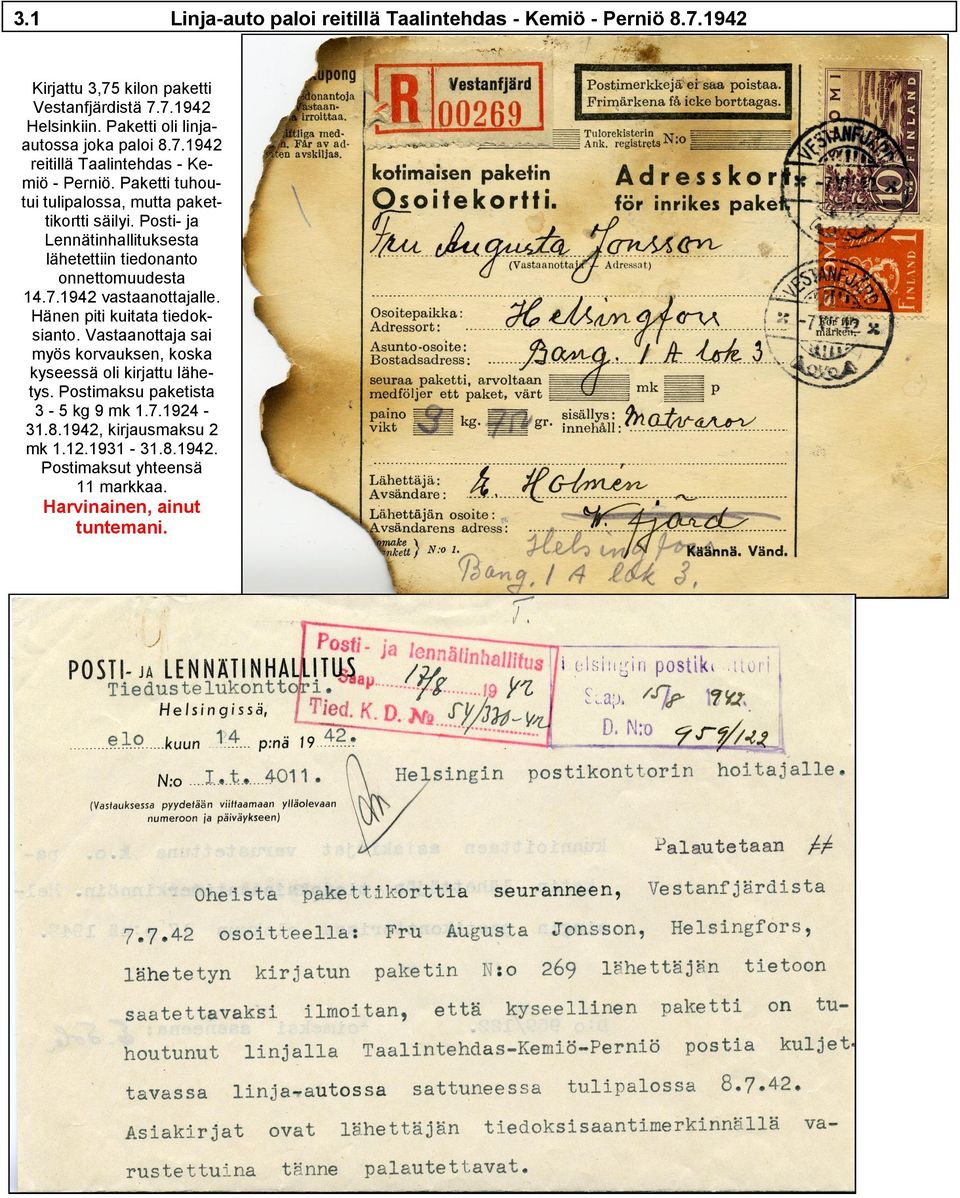 3.1 Linja-auto paloi reitillä Taalintehdas - Kemiö - Perniö 8.7.1942
Kirjattu 3,75 kilon paketti
Vestanfjärdistä 7.7.1942
Helsinkiin. Paketti oli linja-
autossa joka paloi 8.7.1942
reitillä Taalintehdas - Ke-
miö - Perniö. Paketti tuhou-
tui tulipalossa, mutta paket-
tikortti säilyi. Posti- ja
Lennätinhallituksesta
lähetettiin tiedonanto
onnettomuudesta
14.7.1942 vastaanottajalle.
Hänen piti kuitata tiedok-
sianto. Vastaanottaja sai
myös korvauksen, koska
kyseessä oli kirjattu lähe-
tys. Postimaksu paketista
3 - 5 kg 9 mk 1.7.1924 -
31.8.1942, kirjausmaksu 2
mk 1.12.1931 - 31.8.1942.
Postimaksut yhteensä
11 markkaa.
Harvinainen, ainut
tuntemani.
upong
donantoja
astaan-
irroittaa.
ftliga med-
n. Får av ad-
ten avskiljas.
R Vestanfjärd
00269
Postimerkkejä ei saa poistaa.
Frimärkena få icke borttagas.
Tulorekisterin
Ank. registrets N:o
kotimaisen paketin
Osoitekortti.
Adresskort
för inrikes paket.
Fru Augusta Jonsson
(Vastaanottaja — Adressat)
Osoitepaikka:
Adressort: Helsingfors
Asunto-osoite:
Bostadsadress: Bang. 1 A lok 3
seuraa paketti, arvoltaan
medföljer ett paket, värt mk p
paino
vikt 3 kg. 750 gr. sisällys:
innehåll: Matvaror
Lähettäjä:
Avsändare: E. Holmén
Lähettäjän osoite:
Avsändarens adress: W. Fjärd
omake
nkett } N:o 1.
Helsingfors
Käännä. Vänd.
Bang. 1 A lok 3.
SUOMI FINLAND
10
VESTANFJÄRD
FINLAND 1
VESTANFJÄRD
för fri-
märken.
T.
POSTI- JA LENNÄTINHALLITUS
Tiedustelukonttori.
Helsingissä,
elo kuun 14 p:nä 1942.
N:o I.t. 4011.
(Vastauksessa pyydetään viittaamaan ylläolevaan
numeroon ja päiväykseen)
Posti- ja lennätinhallitus
Saap. 17/8 19 42
Tied. K. D. No 54/330-42
Helsingin postikonttori
Saap. 15/8 1942.
D. N:o 959/122
Helsingin postikonttorin hoitajalle.
Palautetaan
Oheista pakettikorttia seuranneen, Vestanfjärdista
7.7.42 osoitteella: Fru Augusta Jonsson, Helsingfors,
lähetetyn kirjatun paketin N:o 269 lähettäjän tietoon
saatettavaksi ilmoitan, että kyseellinen paketti on tu-
houtunut linjalla Taalintehdas-Kemiö-Perniö postia kuljet-
tavassa linja-autossa sattuneessa tulipalossa 8.7.42.
Asiakirjat ovat lähettäjän tiedoksisaantimerkinnällä va-
rustettuina tänne palautettavat.